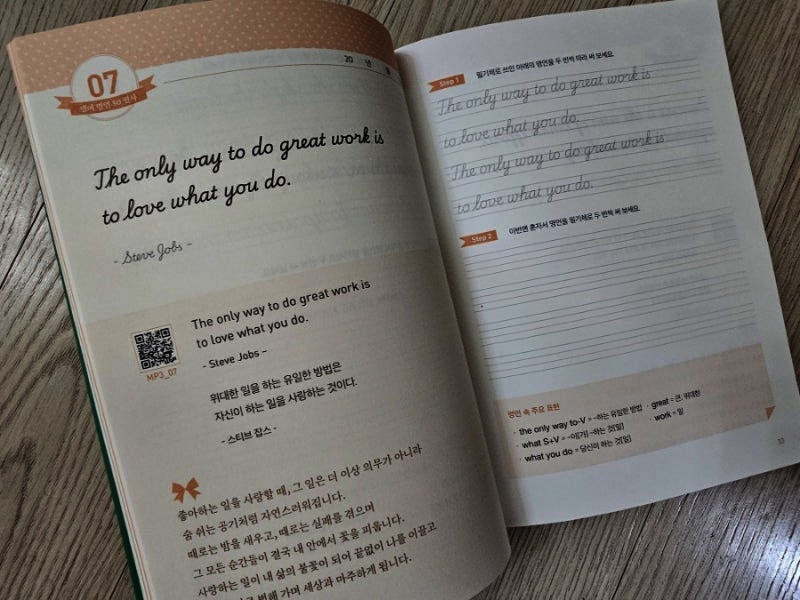 07
영어 명언 50 필사
20 년
The only way to do great work is
to love what you do.
- Steve Jobs -
The only way to do great work is
to love what you do.
- Steve Jobs -
MP3_07
위대한 일을 하는 유일한 방법은
자신이 하는 일을 사랑하는 것이다.
- 스티브 잡스 -
좋아하는 일을 사랑할 때, 그 일은 더 이상 의무가 아니라
숨 쉬는 공기처럼 자연스러워집니다.
때로는 밤을 새우고, 때로는 실패를 겪으며
그 모든 순간들이 결국 내 안에서 꽃을 피웁니다.
사랑하는 일이 내 삶의 불꽃이 되어 끝없이 나를 이끌고
변해 가며 세상과 마주하게 됩니다.
Step 1 필기체로 쓰인 아래의 명언을 두 번씩 따라 써 보세요.
The only way to do great work is
to love what you do.
The only way to do great work is
to love what you do.
Step 2 이번엔 혼자서 명언을 필기체로 두 번씩 써 보세요.
명언 속 주요 표현
· the only way to-V = ~하는 유일한 방법 · great = 큰, 위대한
· what S+V = ~이[가] ~하는 것[일] · work = 일
· what you do = 당신이 하는 것[일]